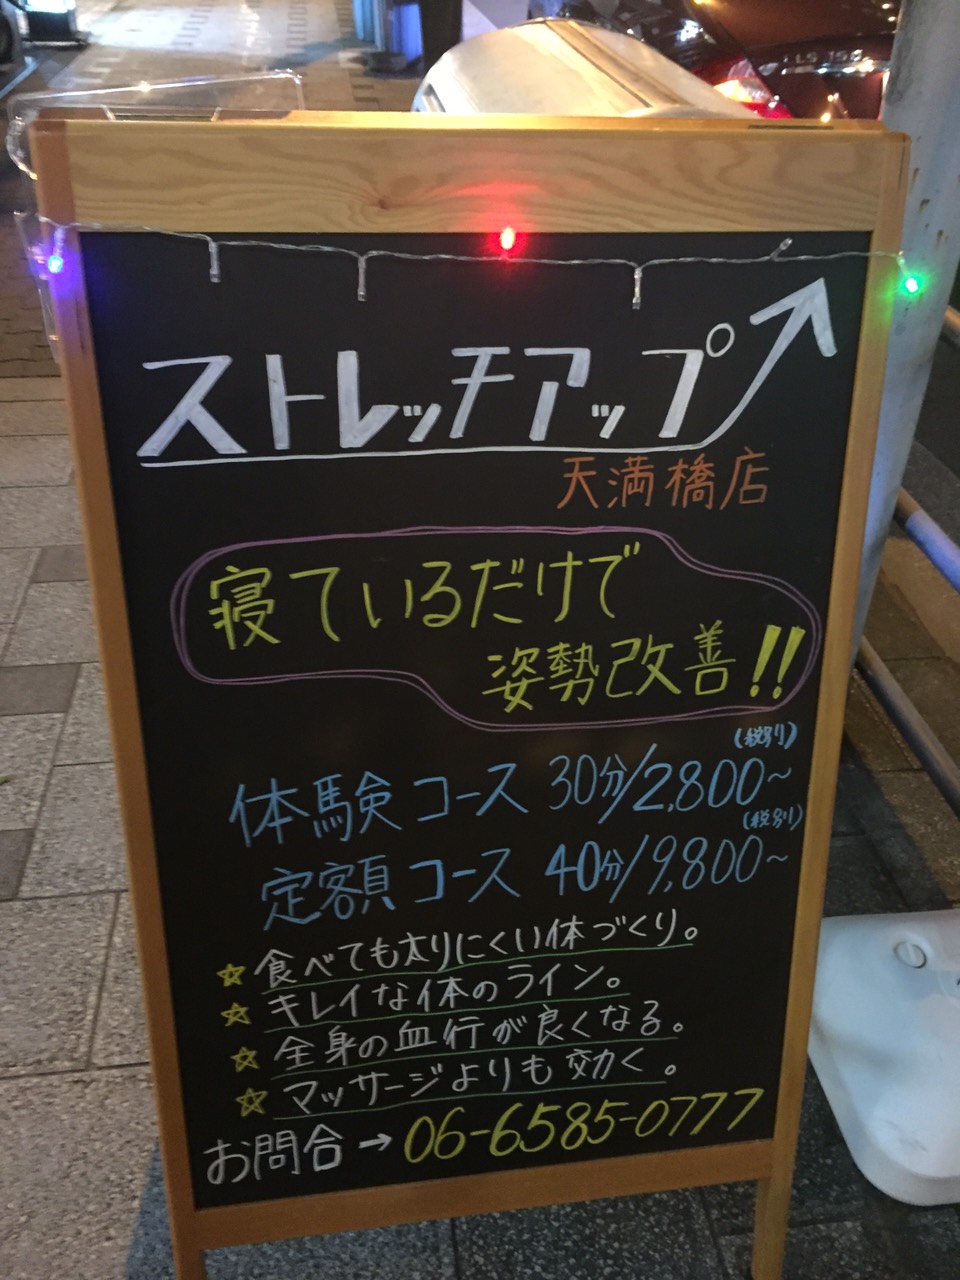 ストレッチアップ
天満橋店
寝ているだけで
姿勢改善!!
(税別)
体験コース 30分/2,800~
(税別)
定額コース 40分/9,800~
☆食べても太りにくい体づくり。
☆キレイな体のライン。
☆全身の血行が良くなる。
☆マッサージよりも効く。
お問合→06-6585-0777